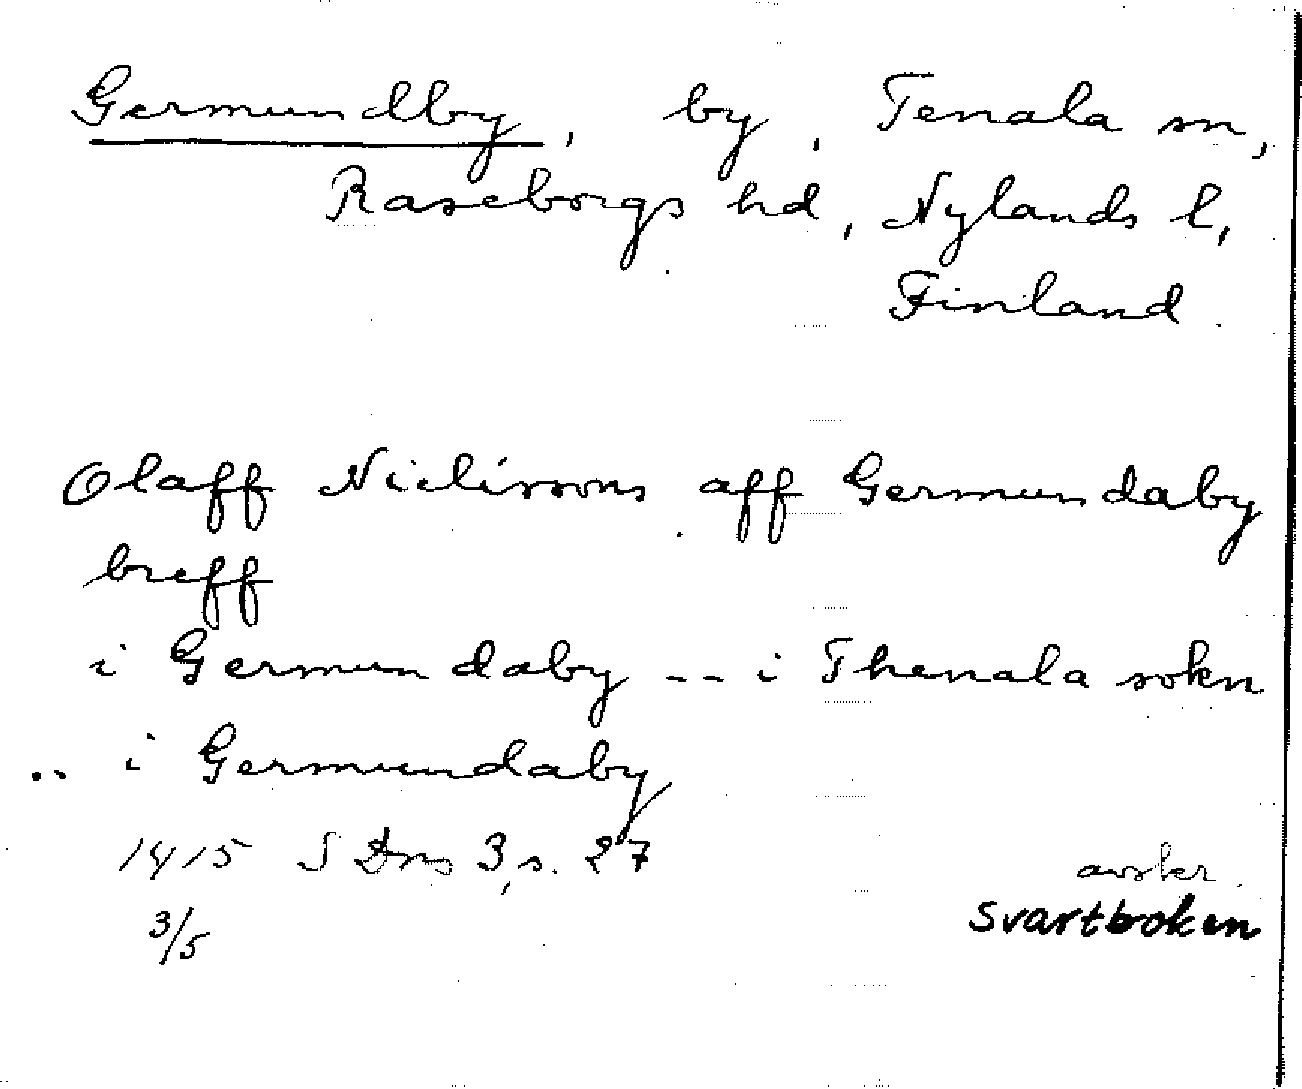 Germundby, by, Tenala sn,
Raseborgs hd, Nylands l,
Finland.
Olaff Niclissons aff Germundaby
breff
i Germundaby -- i Thenala sokn
.. i Germundaby
1415 S Dns 3, s. 27
3/5
avskr.
Svartboken